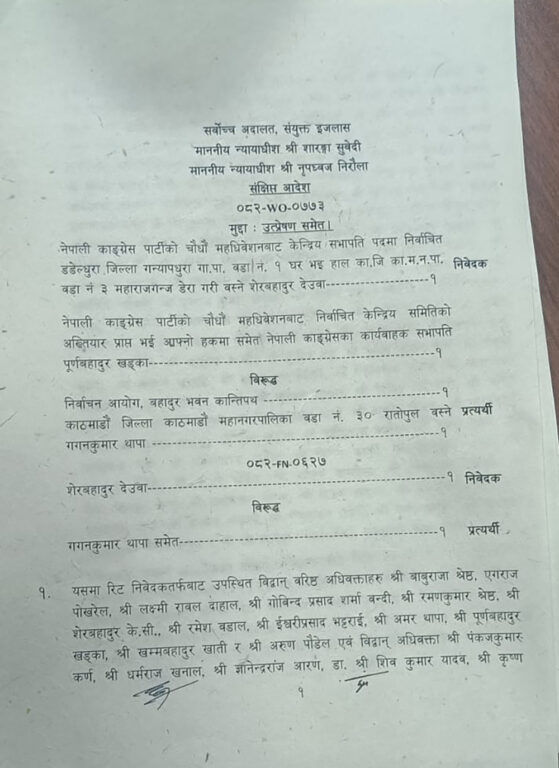 सर्वोच्च अदालत, संयुक्त इजलास
माननीय न्यायाधीश श्री शारङ्गा सुवेदी
माननीय न्यायाधीश श्री नृपध्वज निरौला
संक्षिप्त आदेश
०८२-WO-०७७३
मुद्दा : उत्प्रेषण समेत।
नेपाली काङ्ग्रेस पार्टीको चौधौं महाधिवेशनबाट केन्द्रिय सभापति पदमा निर्वाचित
डडेल्धुरा जिल्ला गन्यापधुरा गा.पा. वडा नं. १ घर भइ हाल का.जि का.म.न.पा. निवेदक
वडा नं ३ महाराजगन्ज डेरा गरी बस्ने शेरबहादुर देउवा------------------१
नेपाली काङ्ग्रेस पार्टीको चौधौं महधिवेशनबाट निर्वाचित केन्द्रिय समितिको
अख्तियार प्राप्त भई आफ्नो हकमा समेत नेपाली काङ्ग्रेसका कार्यबाहक सभापति
पूर्णबहादुर खड्का------------------१
विरूद्ध
निर्वाचन आयोग, बहादुर भवन कान्तिपथ ------------------१
काठमाडौं जिल्ला काठमाडौं महानगरपालिका वडा नं. ३० रातोपुल बस्ने प्रत्यर्थी
गगनकुमार थापा ------------------१
०८२-FN-०६२७
शेरबहादुर देउवा------------------१ निवेदक
विरूद्ध
गगनकुमार थापा समेत------------------१ प्रत्यर्थी
१. यसमा रिट निवेदकतर्फबाट उपस्थित विद्वान् वरिष्ठ अधिवक्ताहरु श्री बाबुराजा श्रेष्ठ, एगराज
पोखरेल, श्री लक्ष्मी रावल दाहाल, श्री गोबिन्द प्रसाद शर्मा बन्दी, श्री रमणकुमार श्रेष्ठ, श्री
शेरबहादुर के.सी., श्री रमेश बडाल, श्री ईश्वरीप्रसाद भट्टराई, श्री अमर थापा, श्री पूर्णबहादुर
खड्का, श्री खम्मबहादुर खाती र श्री अरुण पौडेल एवं विद्वान् अधिवक्ता श्री पंकजकुमार
कर्ण, श्री धर्मराज खनाल, श्री ज्ञानेन्द्रराज आरण, डा. श्री शिव कुमार यादव, श्री कृष्ण
१